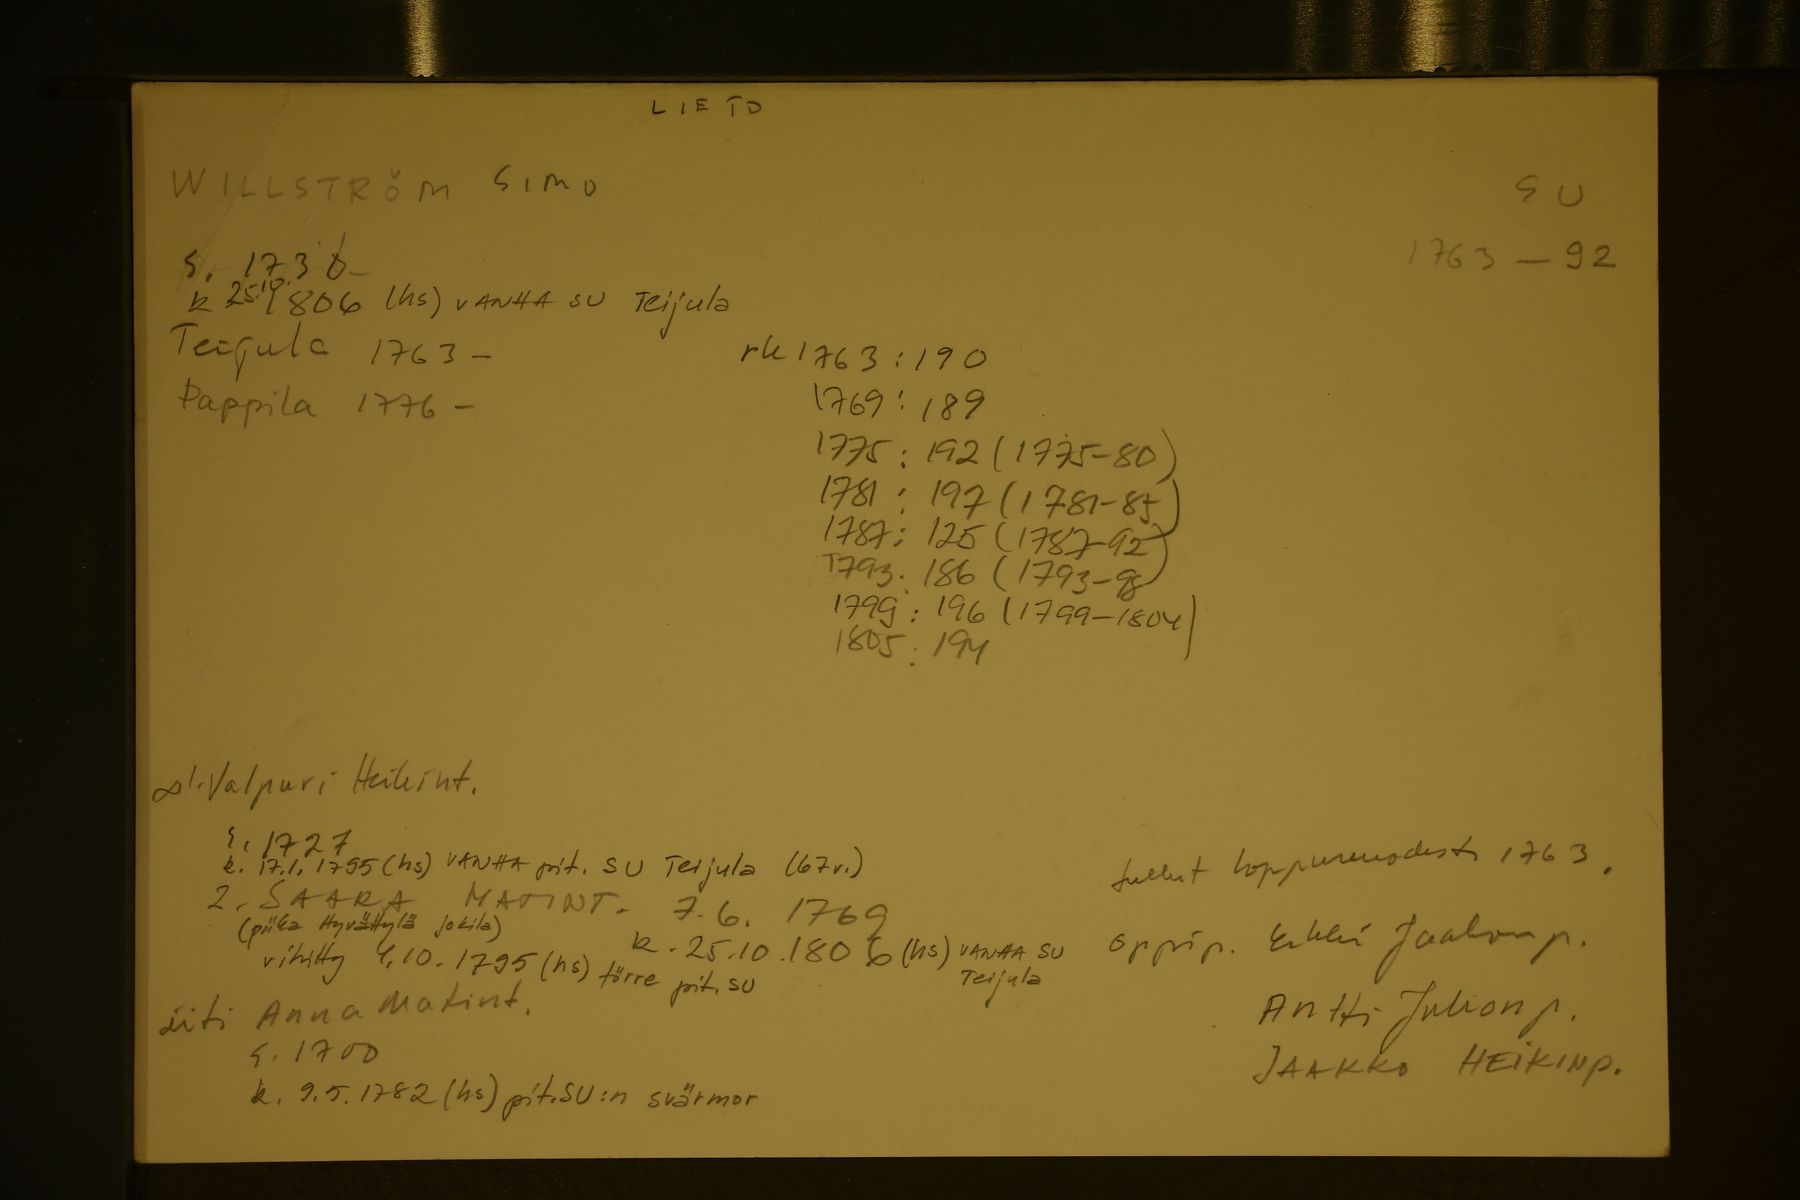 LIETO
WILLSTRÖM SIMO
SU
1763 – 92
s. 1736
k 25.10. 1806 (hs) VANHA SU Teijula
Teijula 1763 –
Pappila 1776 –
rk 1763 : 190
1769 : 189
1775 : 192 (1775–80)
1781 : 197 (1781–85)
1787 : 125 (1787–92)
1793 : 186 (1793–98)
1799 : 196 (1799–1804)
1805 : 194
∞ 1. Valpuri Heikint.
s. 1727
k. 17.1.1795 (hs) VANHA pit. SU Teijula (67v.)
2. SAARA MATINT. 7.6. 1769
(piika Hyvättylä Jokila)
k. 25.10.1806 (hs) VANHA SU Teijula
vihitty 4.10.1795 (hs) förre pit. SU
äiti Anna Matint.
s. 1700
k. 9.5.1782 (hs) pit.SU:n svärmor
tullut loppuvuodesta 1763.
oppip. Erkki Jaakonp.
Antti Juhonp.
JAAKKO HEIKINP.